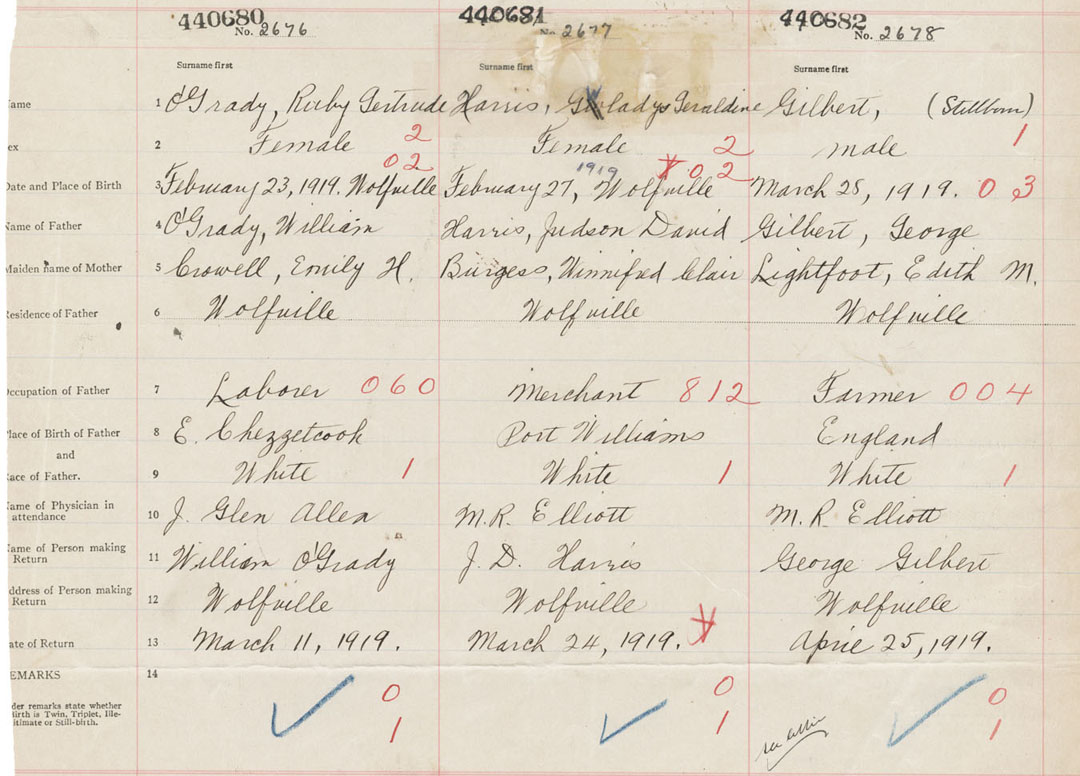 440680 440681 440682
No. 2676 No. 2677 No. 2678
Surname first Surname first Surname first
ame 1 O'Grady, Ruby Gertrude Harris, Gwladys Geraldine Gilbert, (Stillborn)
ex 2 Female 2 Female 2 male 1
02 1919 02
Date and Place of Birth 3 February 23, 1919. Wolfville February 27, Wolfville March 25, 1919. 03
Name of Father 4 O'Grady, William Harris, Judson David Gilbert, George
Maiden name of Mother 5 Crowell, Emily H. Burgess, Winnifred Clair Lightfoot, Edith M.
Residence of Father 6 Wolfville Wolfville Wolfville
Occupation of Father 7 Laborer 060 Merchant 812 Farmer 004
Place of Birth of Father 8 E. Chezzetcook Port Williams England
and
Race of Father. 9 White 1 White 1 White 1
Name of Physician in
attendance 10 J. Glen Allen M.R. Elliott M.R. Elliott
Name of Person making
Return 11 William O'Grady J. D. Harris George Gilbert
Address of Person making
Return 12 Wolfville Wolfville Wolfville
ate of Return 13 March 11, 1919. March 24, 1919. April 25, 1919.
REMARKS 14
0 0 0
der remarks state whether
birth is Twin, Triplet, Ille-
itimate or Still-birth.
1 1 1